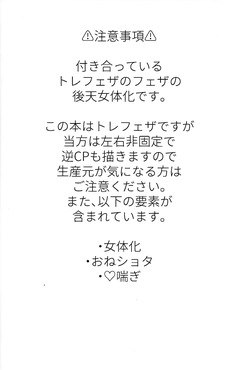 ⚠注意事項⚠
付き合っている
トレフェザのフェザの
後天女体化です。
この本はトレフェザですが
当方は左右非固定で
逆CPも描きますので
生産元が気になる方は
ご注意ください。
また、以下の要素が
含まれています。
・女体化
・おねショタ
・♡喘ぎ